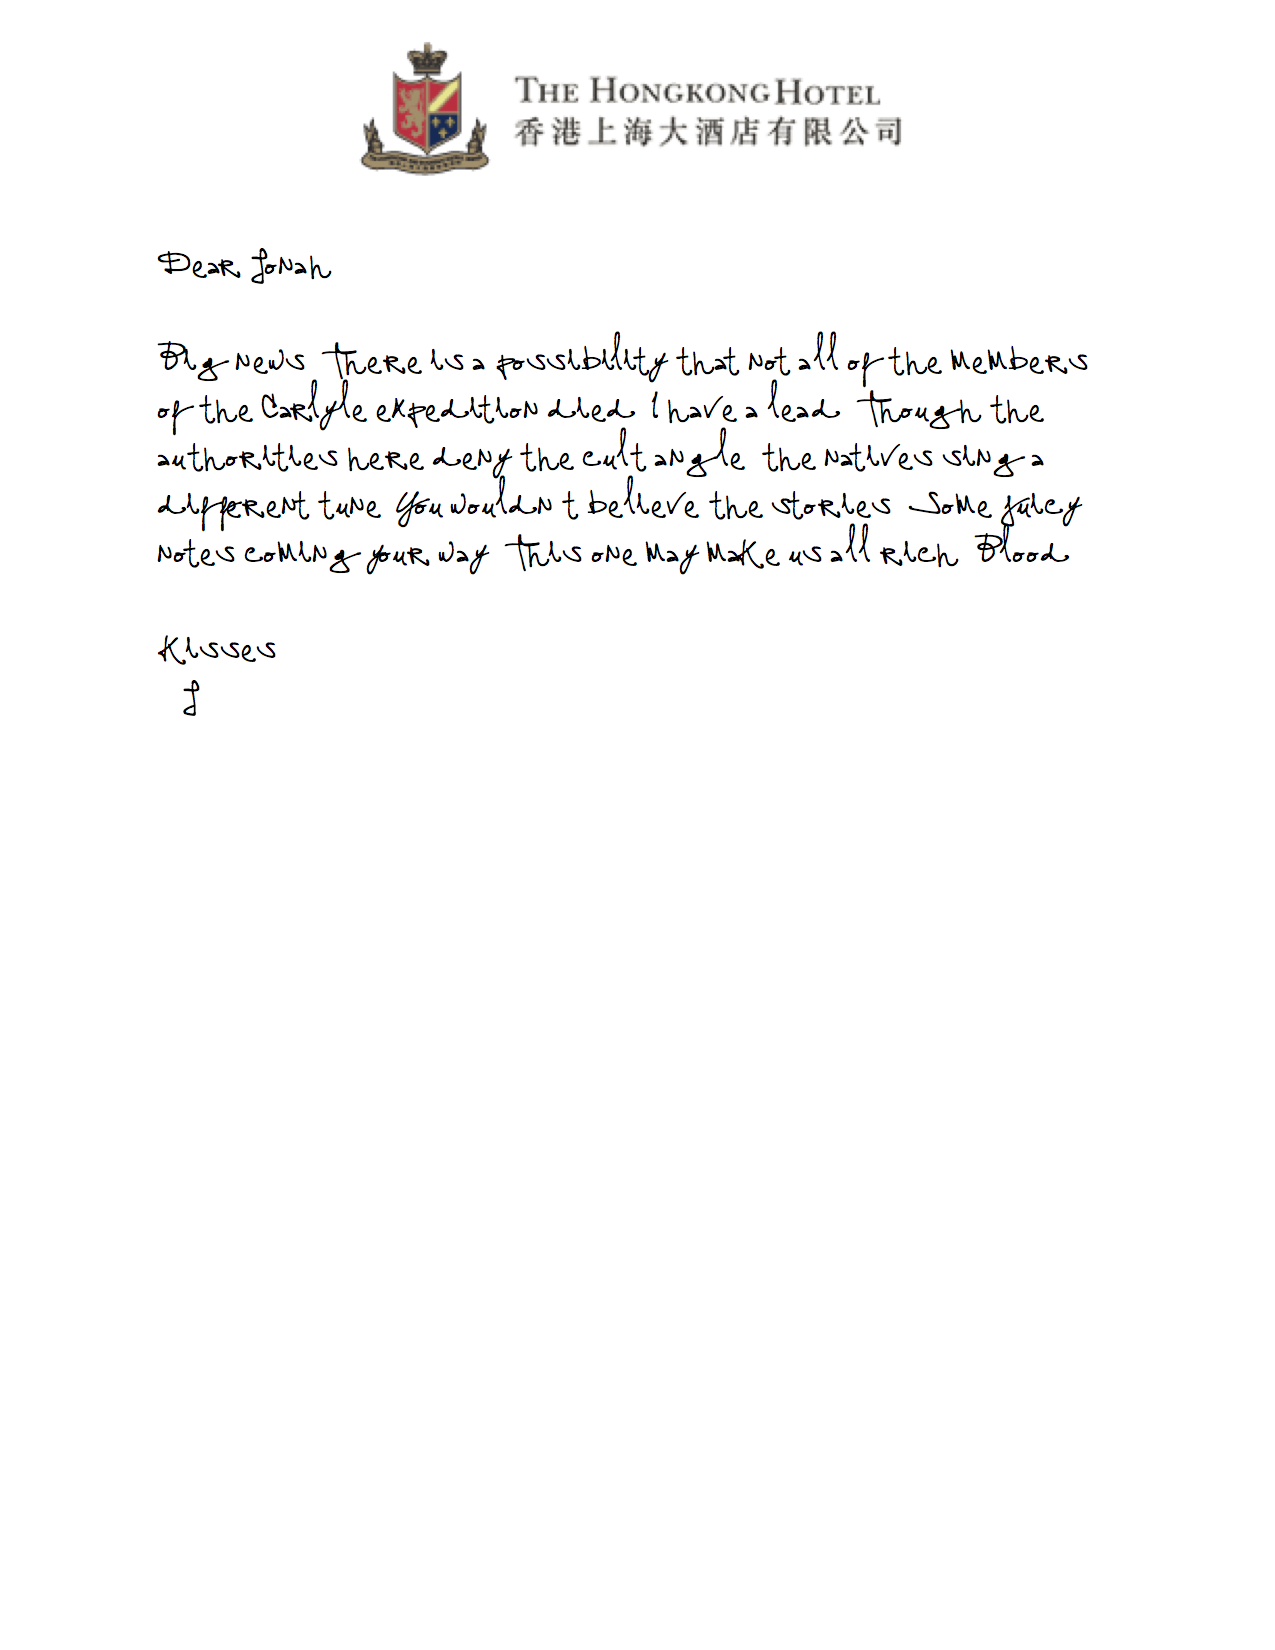 THE HONGKONG HOTEL
香港上海大酒店有限公司
Dear Jonah
Big news There is a possibility that not all of the members
of the Carlyle expedition died I have a lead Though the
authorities here deny the cult angle the natives sing a
different tune You wouldn t believe the stories Some juicy
notes coming your way This one may make us all rich Blood
Kisses
J